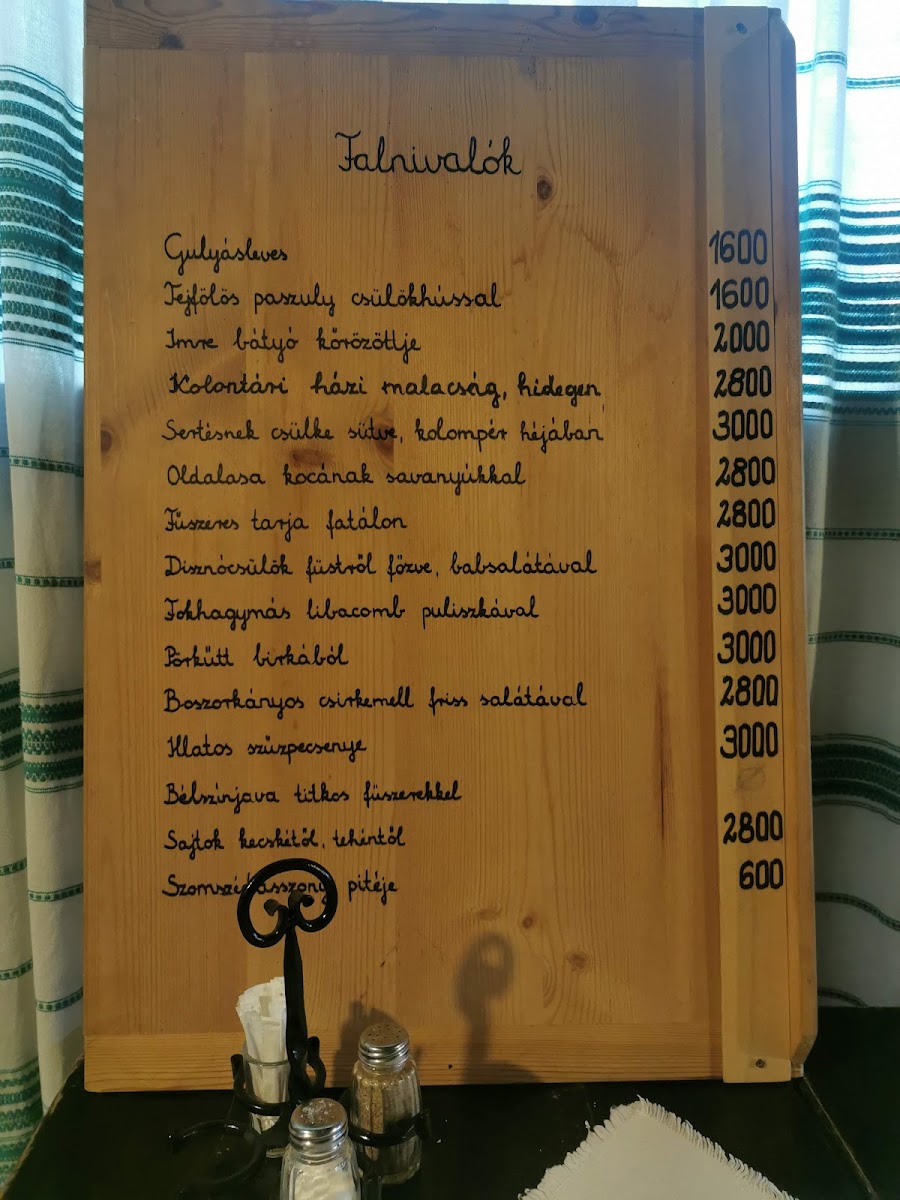 Falnivalók
Gulyásleves 1600
Tejfölös paszuly csülökhússal 1600
Imre bátyó kőrözöttje 2000
Kolontári házi malacság, hidegen 2800
Sertésnek csülke sütve, kolompér héjában 3000
Oldalasa kocának savanyúkkal 2800
Fűszeres tarja fatálon 2800
Disznócsülök füstről főzve, babsalátával 3000
Fokhagymás libacomb puliszkával 3000
Pörkütt birkából 3000
Boszorkányos csirkemell friss salátával 2800
Illatos szűzpecsenye 3000
Bélszínjava titkos fűszerekkel
Sajtok kecskétől, tehéntől 2800
Szomszédasszony pitéje 600